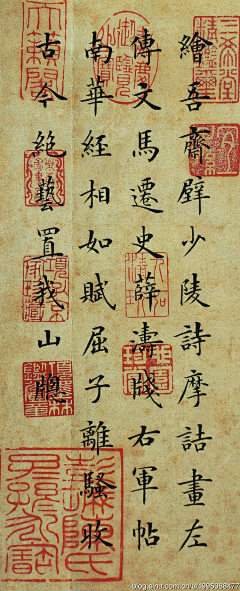 繪吾齋壁少陵詩摩詰畫左
傳文馬遷史薛濤牋右軍帖
南華經相如賦屈子離騷收
古今絕藝置我山牕
三希堂精鑑璽
宜子孫